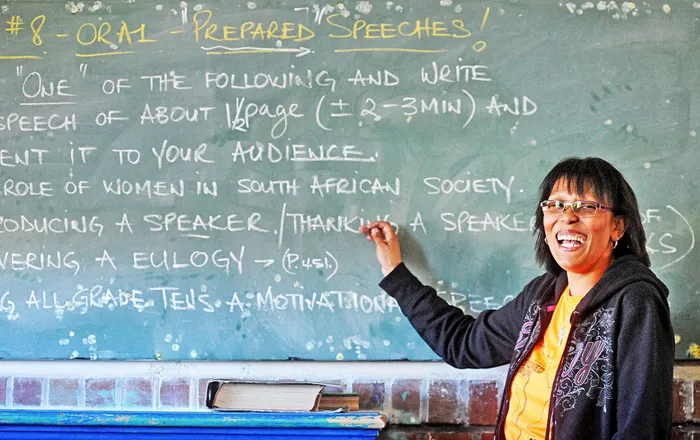 #8 - ORAL - "PREPARED" SPEECHES!
"ONE" OF THE FOLLOWING AND WRITE
SPEECH OF ABOUT 1½ page (± 2-3MIN) AND
ENT IT TO YOUR AUDIENCE.
ROLE OF WOMEN IN SOUTH AFRICAN SOCIETY.
RODUCING A SPEAKER./THANKING A SPEAKER OF)
VERING A EULOGY → (P.451)
G ALL GRADE TENS A MOTIVATIONAL SPEE